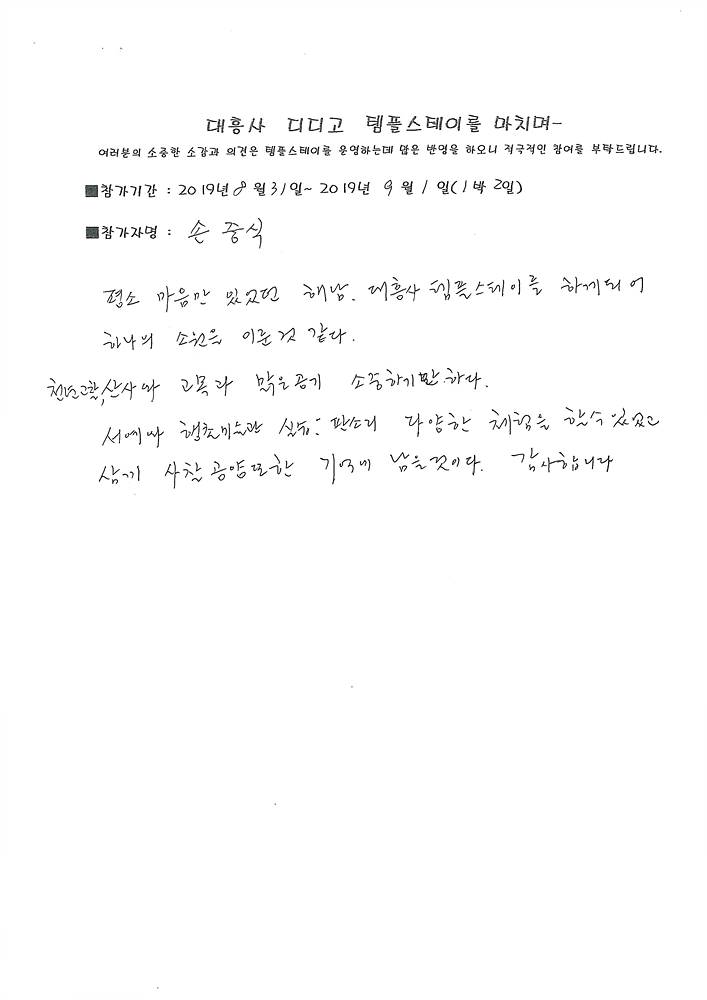 대흥사 디디고 템플스테이를 마치며-
여러분의 소중한 소감과 의견은 템플스테이를 운영하는데 많은 반영을 하오니 적극적인 참여를 부탁드립니다.
■참가기간 : 2019년 8월 31일~ 2019년 9월 1일(1박 2일)
■참가자명 : 손 중식
평소 마음만 있었던 해남. 대흥사 템플스테이를 하게되어
하나의 소원을 이룬것 같다.
천년고찰, 산사와 고목과 맑은공기 소중하기만.하다.
서예와 판소리 다양한 체험을 할수 있었고
삼끼 사찰공양또한 기억에 남을것이다. 감사합니다